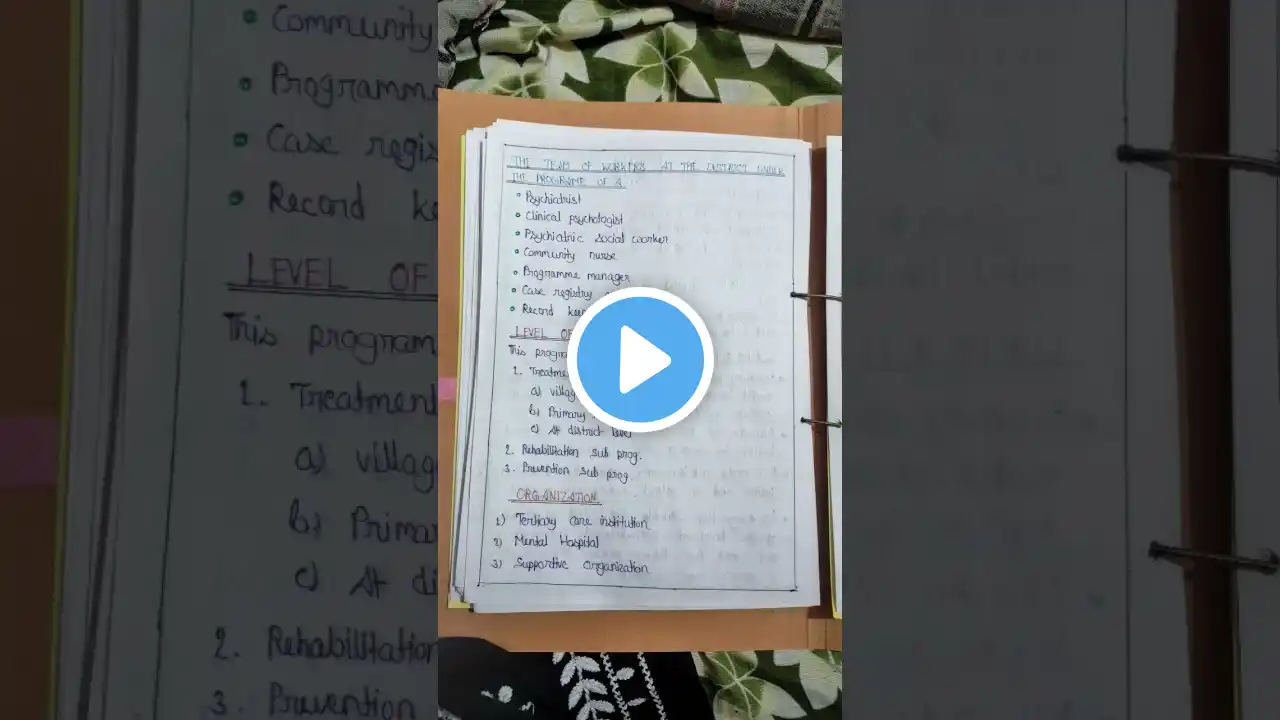 THE TEAM OF WORKERS AT THE DISTRICT UNDER
THE PROGRAME OF
• Psychiatrist
• Clinical psychologist
• Psychiatric social worker
• Community nurse
• Programme manager
• Case registry
• Record
LEVEL OF
This
1. Treatment
a) village
b) Primary
c) At district level
2. Rehabilitation sub prog.
3. Prevention sub prog.
ORGANIZATION
1) Tertiary care institution
2) Mental Hospital
3) Supportive Organization